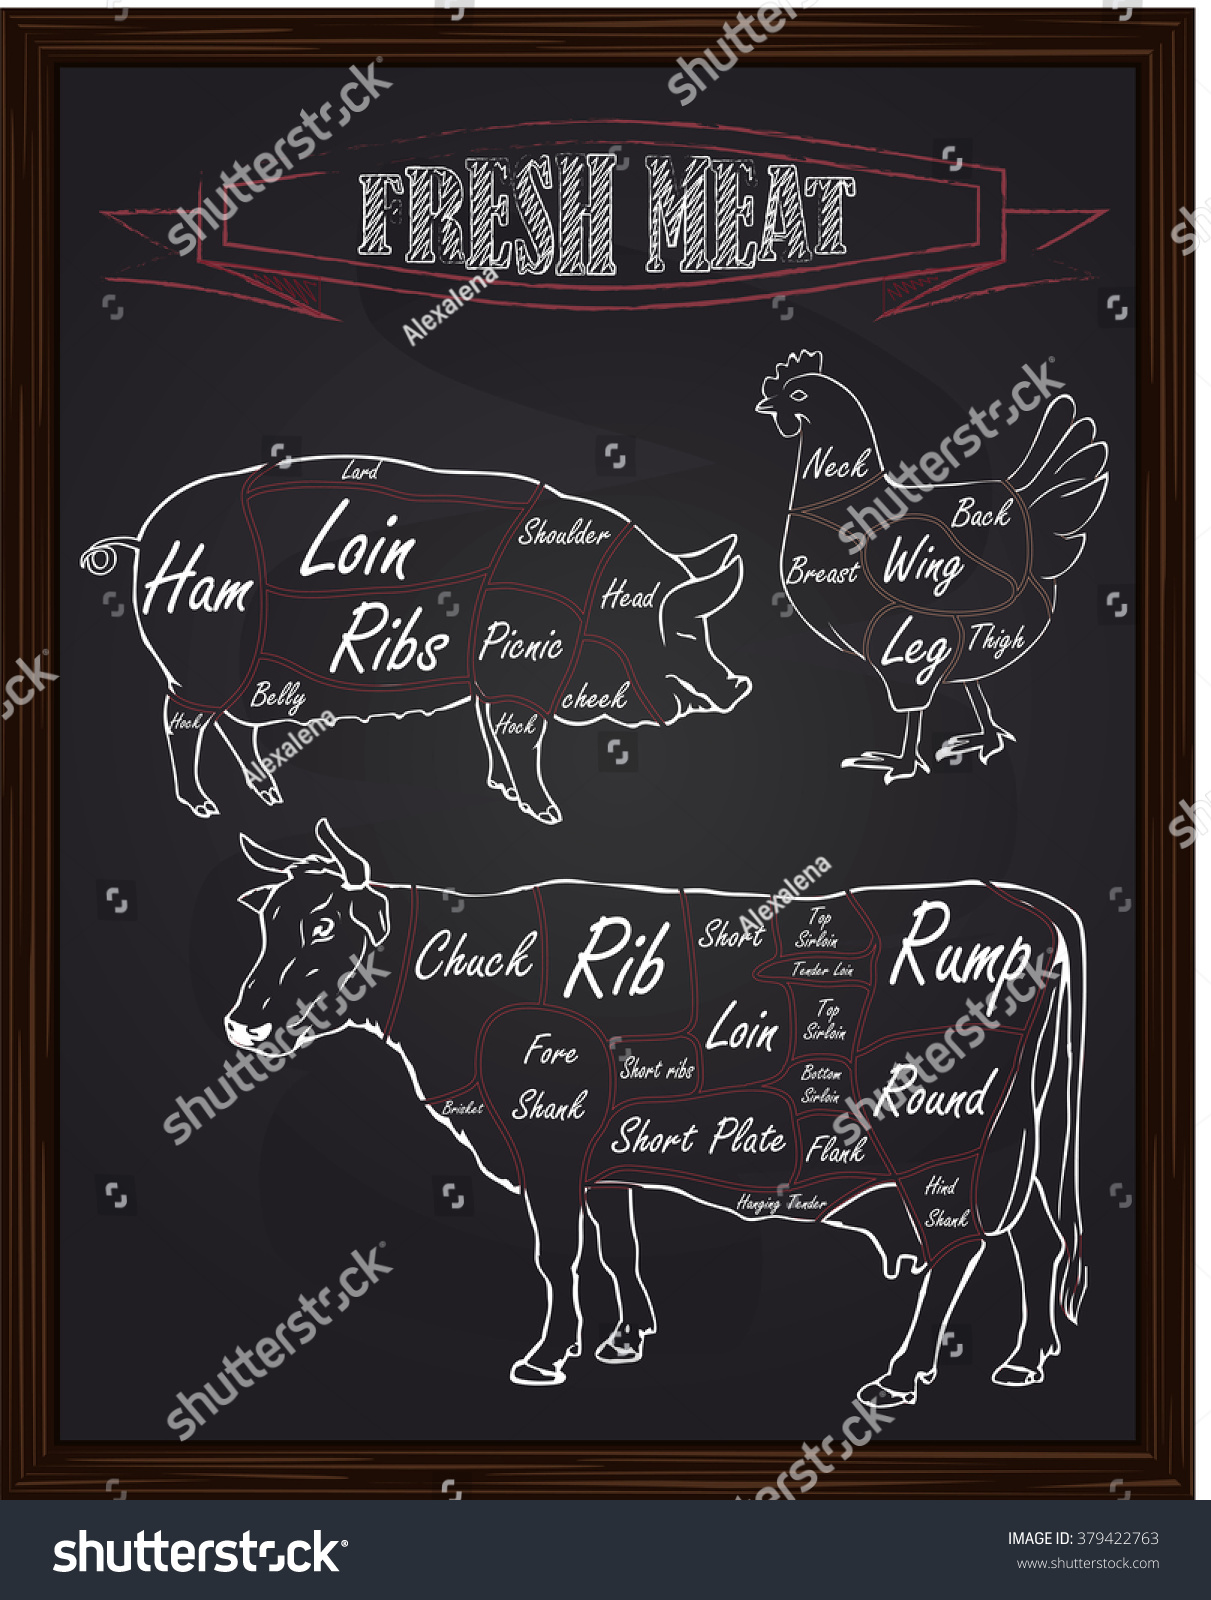 FRESH MEAT
Lard
Loin
Shoulder
Ham
Head
Ribs
Picnic
Belly
cheek
Hock
Hock
Neck
Back
Breast
Wing
Leg
Thigh
Chuck
Rib
Short
Loin
Top
Sirloin
Tender Loin
Top
Sirloin
Bottom
Sirloin
Rump
Round
Fore
Shank
Short ribs
Brisket
Short Plate
Flank
Hanging Tender
Hind
Shank
shutterstock
shutterstock
shutterstock
shutterstock
shutterstock
shutterstock
shutterstock
Alexalena
Alexalena
Alexalena
shutterstock
IMAGE ID: 379422763
www.shutterstock.com